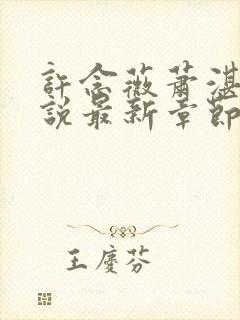 許念薇蕭湛
說最新章節
王慶芬